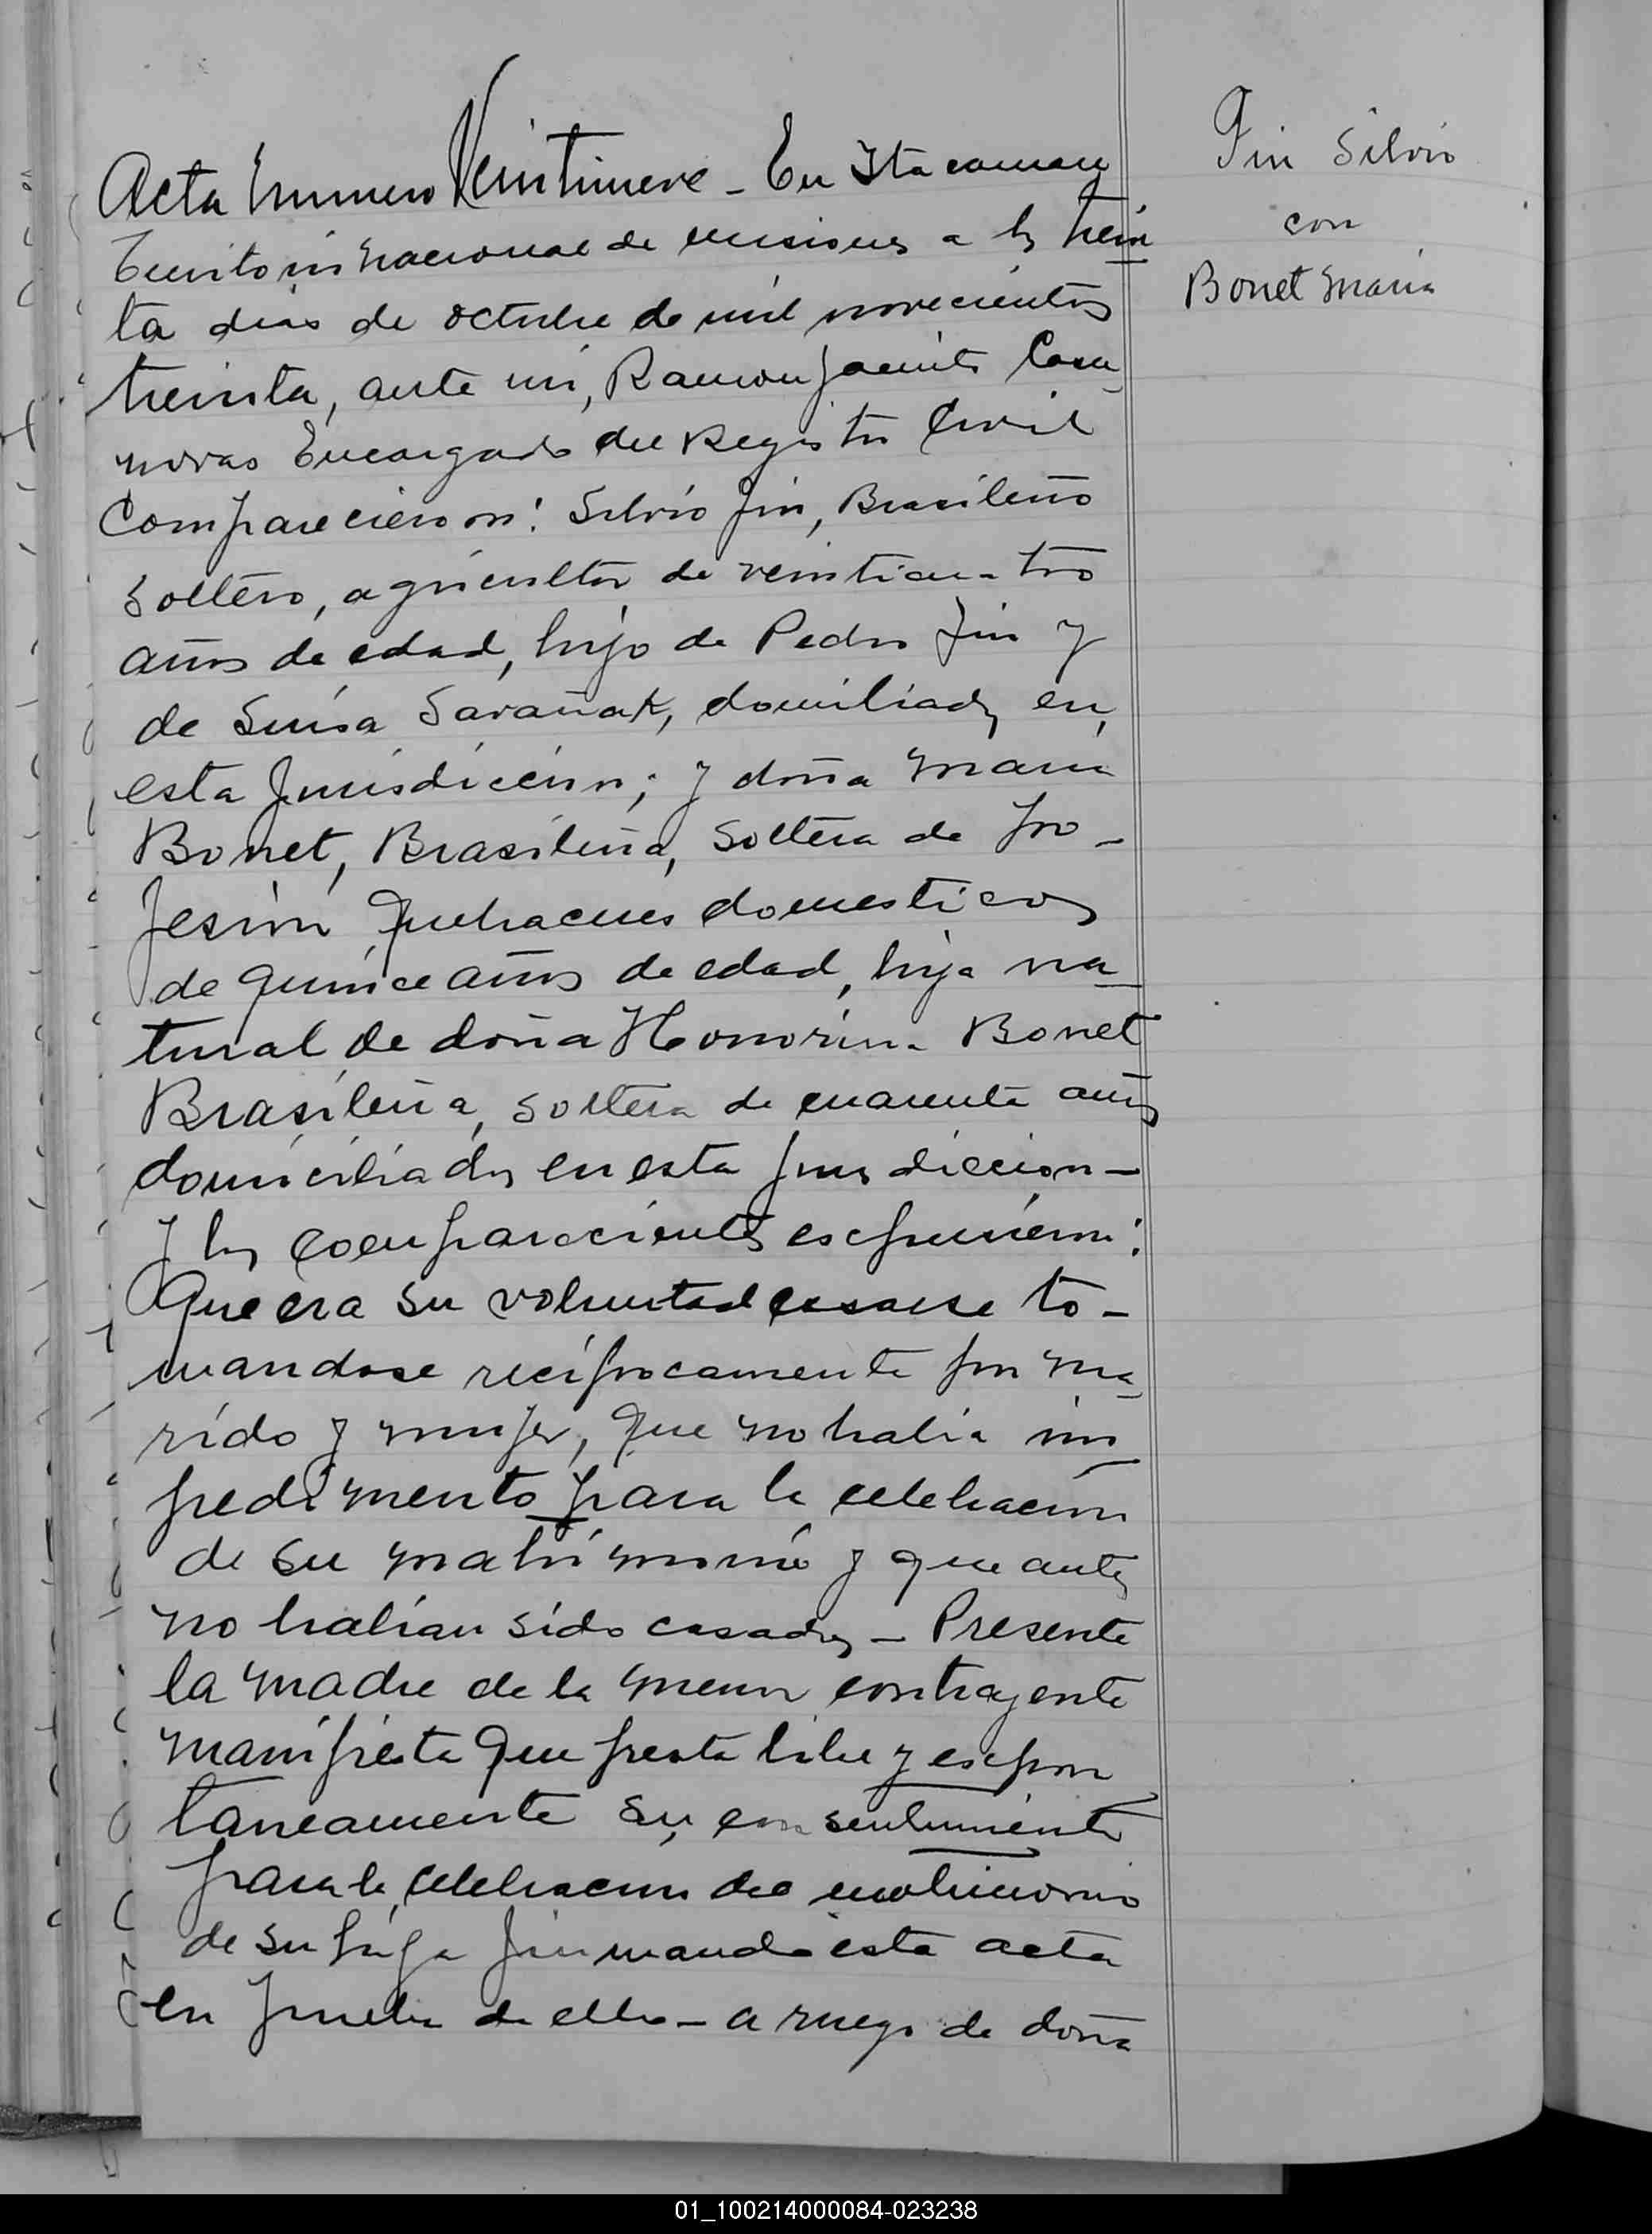 Acta Numero Veintinueve - En Itacaruare
Territorio Nacional de Misiones a los trein
ta dias de octubre de mil novecientos
treinta, ante mi, Ramon Jacinto Casa
novas Encargado del Registro Civil
Comparecieron: Silvio Pin, Brasileño
soltero, agricultor de veinticuatro
años de edad, hijo de Pedro Pin y
de Luisa domiliados en
esta jurisdiccion; y doña Maria
Bonet, Brasileña, soltera de pro-
fesion quehaceres domesticos
de quince años de edad, hija na
tural de doña Honorina Bonet
Brasileña, soltera de cuarenta años
domiciliados en esta jurisdiccion -
y los comparecientes escpusieron:
Que era su voluntad casarse to-
mandose reciprocamente por ma
rido y mujer, que no habia im
pedimento para la celebracion
de su matrimonio y que antes
no habian sido casados - Presente
la madre de la menor contrayente
manifiesta que presta libre y escpon
taneamente su consentimiento
para la celebracion del matrimonio
de su hija firmando esta acta
en prueba de ello - a ruego de doña
Pin Silvio
con
Bonet Maria
01_100214000084-023238